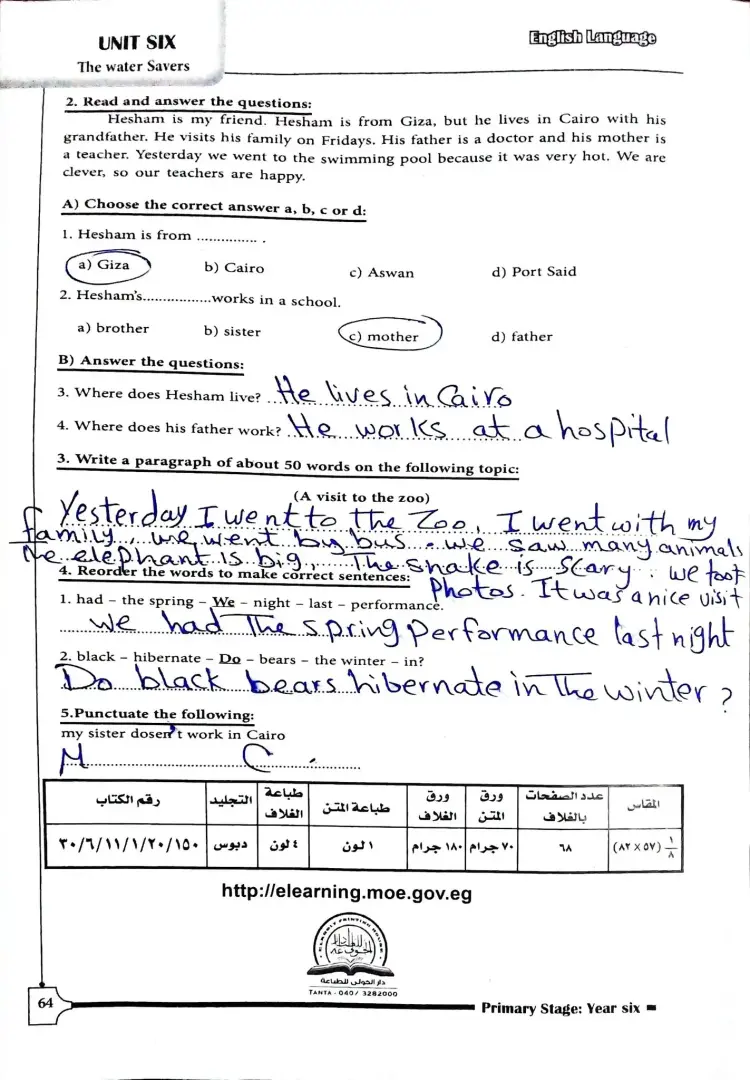 UNIT SIX
The water Savers
English Language
2. Read and answer the questions:
Hesham is my friend. Hesham is from Giza, but he lives in Cairo with his
grandfather. He visits his family on Fridays. His father is a doctor and his mother is
a teacher. Yesterday we went to the swimming pool because it was very hot. We are
clever, so our teachers are happy.
A) Choose the correct answer a, b, c or d:
1. Hesham is from ............... .
a) Giza b) Cairo c) Aswan d) Port Said
2. Hesham's.................works in a school.
a) brother b) sister c) mother d) father
B) Answer the questions:
3. Where does Hesham live? He lives in Cairo
4. Where does his father work? He works at a hospital
3. Write a paragraph of about 50 words on the following topic:
(A visit to the zoo)
Yesterday I went to the Zoo. I went with my
family. we went by bus. we saw many animals
The elephant is big. The snake is scary. we took
Photos. It was a nice visit
4. Reorder the words to make correct sentences:
1. had – the spring – We – night – last – performance.
we had The spring performance last night
2. black – hibernate – Do – bears – the winter – in?
Do black bears hibernate in The winter ?
5.Punctuate the following:
my sister dosen't work in Cairo
M C .
المقاس عدد الصفحات بالغلاف ورق المتن ورق الغلاف طباعة المتن طباعة الغلاف التجليد رقم الكتاب
١/٨ (٥٧ X ٨٢) ٦٨ ٧٠ جرام ١٨٠ جرام ١ لون ٤ لون دبوس ٣٠/٦/١١/١/٢٠/١٥٠
http://elearning.moe.gov.eg
دار الخولى للطباعة
TANTA - 040/ 3282000
64
Primary Stage: Year six